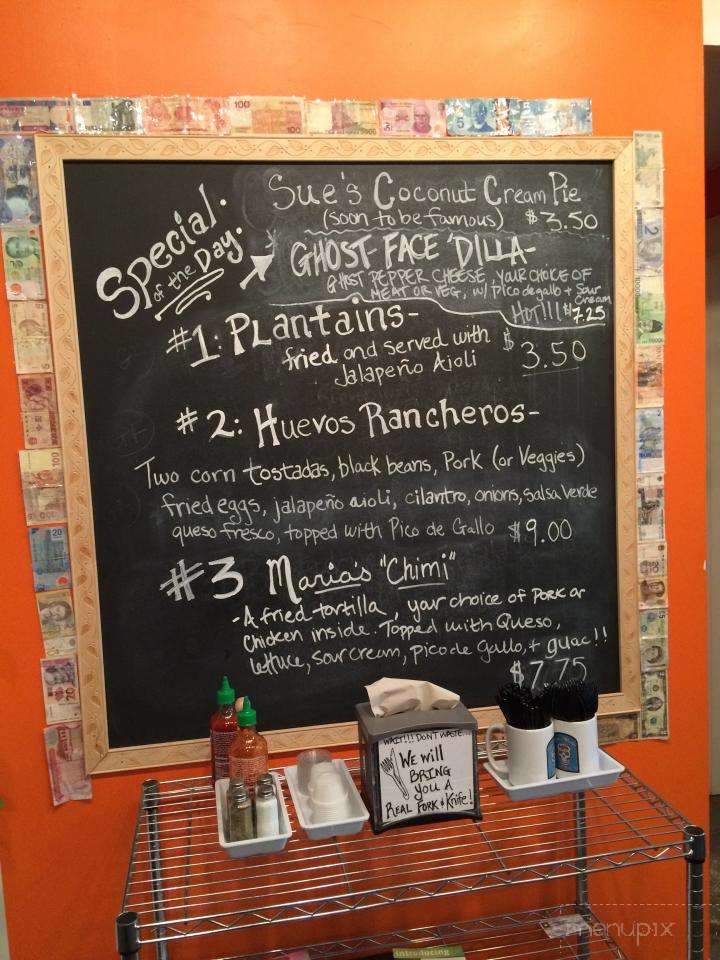 Special
of the Day:
Sue's Coconut Cream Pie
(soon to be famous) $3.50
GHOST FACE 'DILLA-
GHOST PEPPER CHEESE, YOUR CHOICE OF
MEAT OR VEG, w/ pico de gallo + Sour
Cream
HOT!!! $7.25
#1: PLantains-
fried and served with
Jalapeño Aioli
$3.50
#2: Huevos Rancheros-
Two corn tostadas, black beans, Pork (or Veggies)
fried eggs, jalapeño aioli, cilantro, onions, salsa verde
queso fresco, topped with Pico de Gallo $9.00
#3 Maria's "Chimi"
-A fried tortilla, your choice of PORK or
Chicken inside. Topped with Queso,
lettuce, sour cream, pico de gallo, + guac!!
$7.75
WAIT!!! DON'T WASTE...
We will
BRING
you A
REAL FORK & Knife!
introducing
menupix